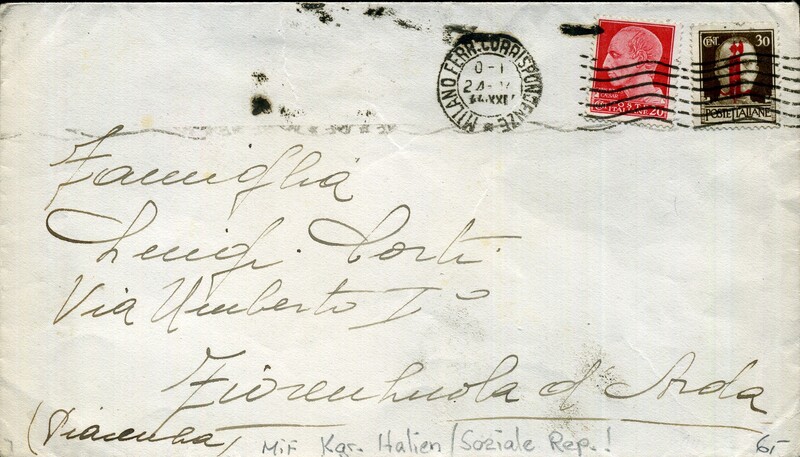 MILANO FERR. CORRISPONDENZE
24-V
44.XXII
POSTE ITALIANE 20
CENT. 30
POSTE ITALIANE
Famiglia
Luigi Corti
Via Umberto I°
Fiorenhuola d'Arda
(Piacenha)
Mif Kgr. Italien/Soziale Rep.!
6,-